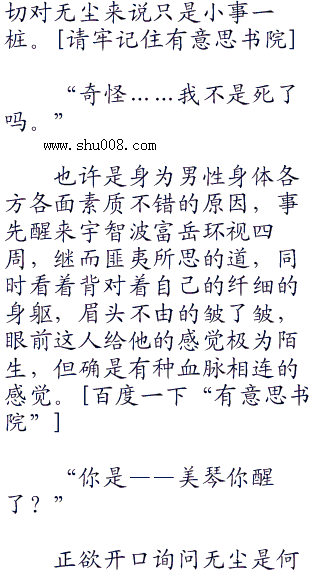 切对无尘来说只是小事一
桩。[请牢记住有意思书院]
“奇怪……我不是死了
吗。”
www.shu008.com
也许是身为男性身体各
方各面素质不错的原因，事
先醒来宇智波富岳环视四
周，继而匪夷所思的道，同
时看着背对着自己的纤细的
身躯，眉头不由的皱了皱，
眼前这人给他的感觉极为陌
生，但确是有种血脉相连的
感觉。[百度一下“有意思书
院”]
“你是——美琴你醒
了？”
正欲开口询问无尘是何